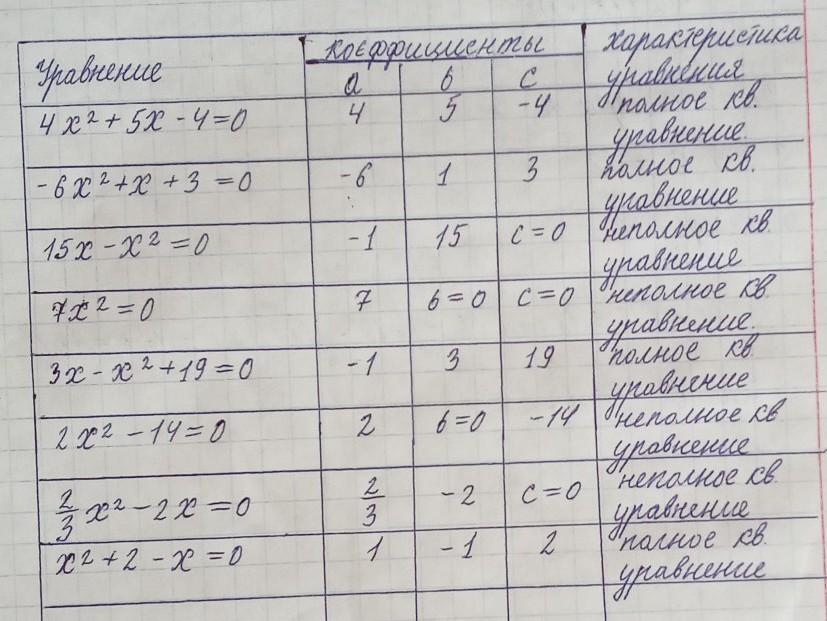 Уравнение коэффициенты характеристика
а в с уравнения
4х² + 5х - 4 = 0 4 5 -4 полное кв.
уравнение.
-6х² + х + 3 = 0 -6 1 3 полное кв.
уравнение
15х - х² = 0 -1 15 с = 0 неполное кв.
уравнение
7х² = 0 7 в = 0 с = 0 неполное кв.
уравнение.
3х - х² + 19 = 0 -1 3 19 полное кв.
уравнение
2х² - 14 = 0 2 в = 0 -14 неполное кв
уравнение
2/3 х² - 2х = 0 2/3 -2 с = 0 неполное кв.
уравнение
х² + 2 - х = 0 1 -1 2 полное кв.
уравнение